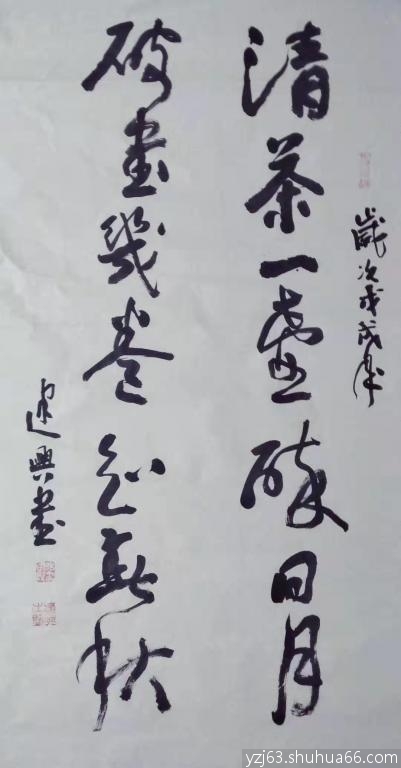 歲次戊戌年
清茶一壺醉日月
破書幾卷知春秋
建興書
yzj63.shuhua66.com